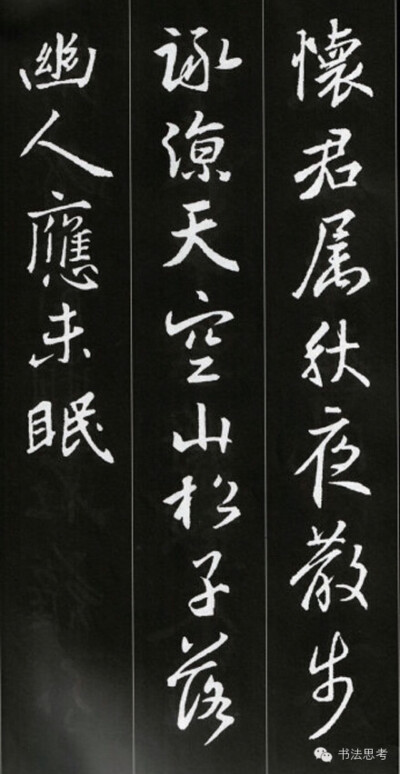 懷君属秋夜散步
詠涼天空山松子落
幽人應未眠
书法思考